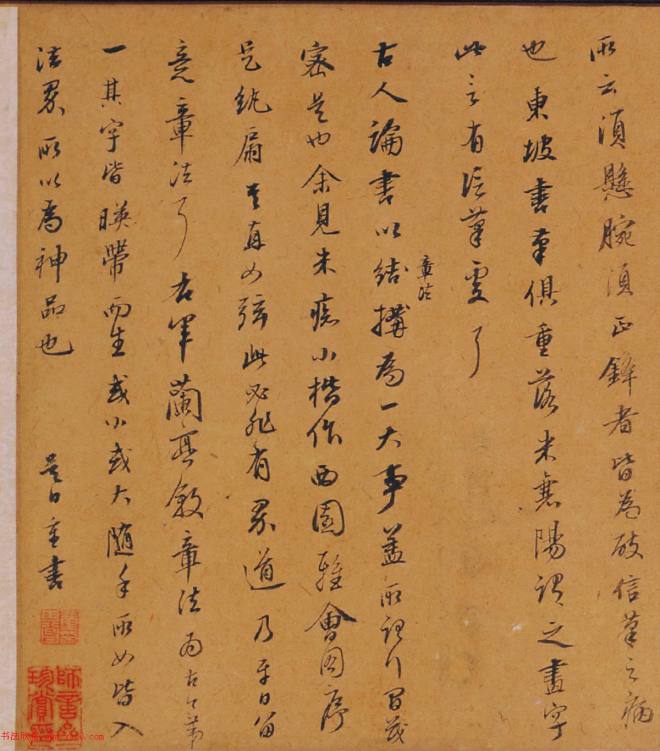 所云須懸腕須正鋒者皆為破信筆之病
也東坡書筆俱重落米襄陽謂之畫字
此言有信筆處了
古人論書以結搆章法為一大事蓋所謂行間茂
密是也余見米痴小楷作西園雅會圖序
是紈扇其直如弦此必非有界道乃平日留
意章法了右軍蘭亭敘章法為古今第
一其字皆暎帶而生或小或大隨手所如皆入
法界所以為神品也 是日重書